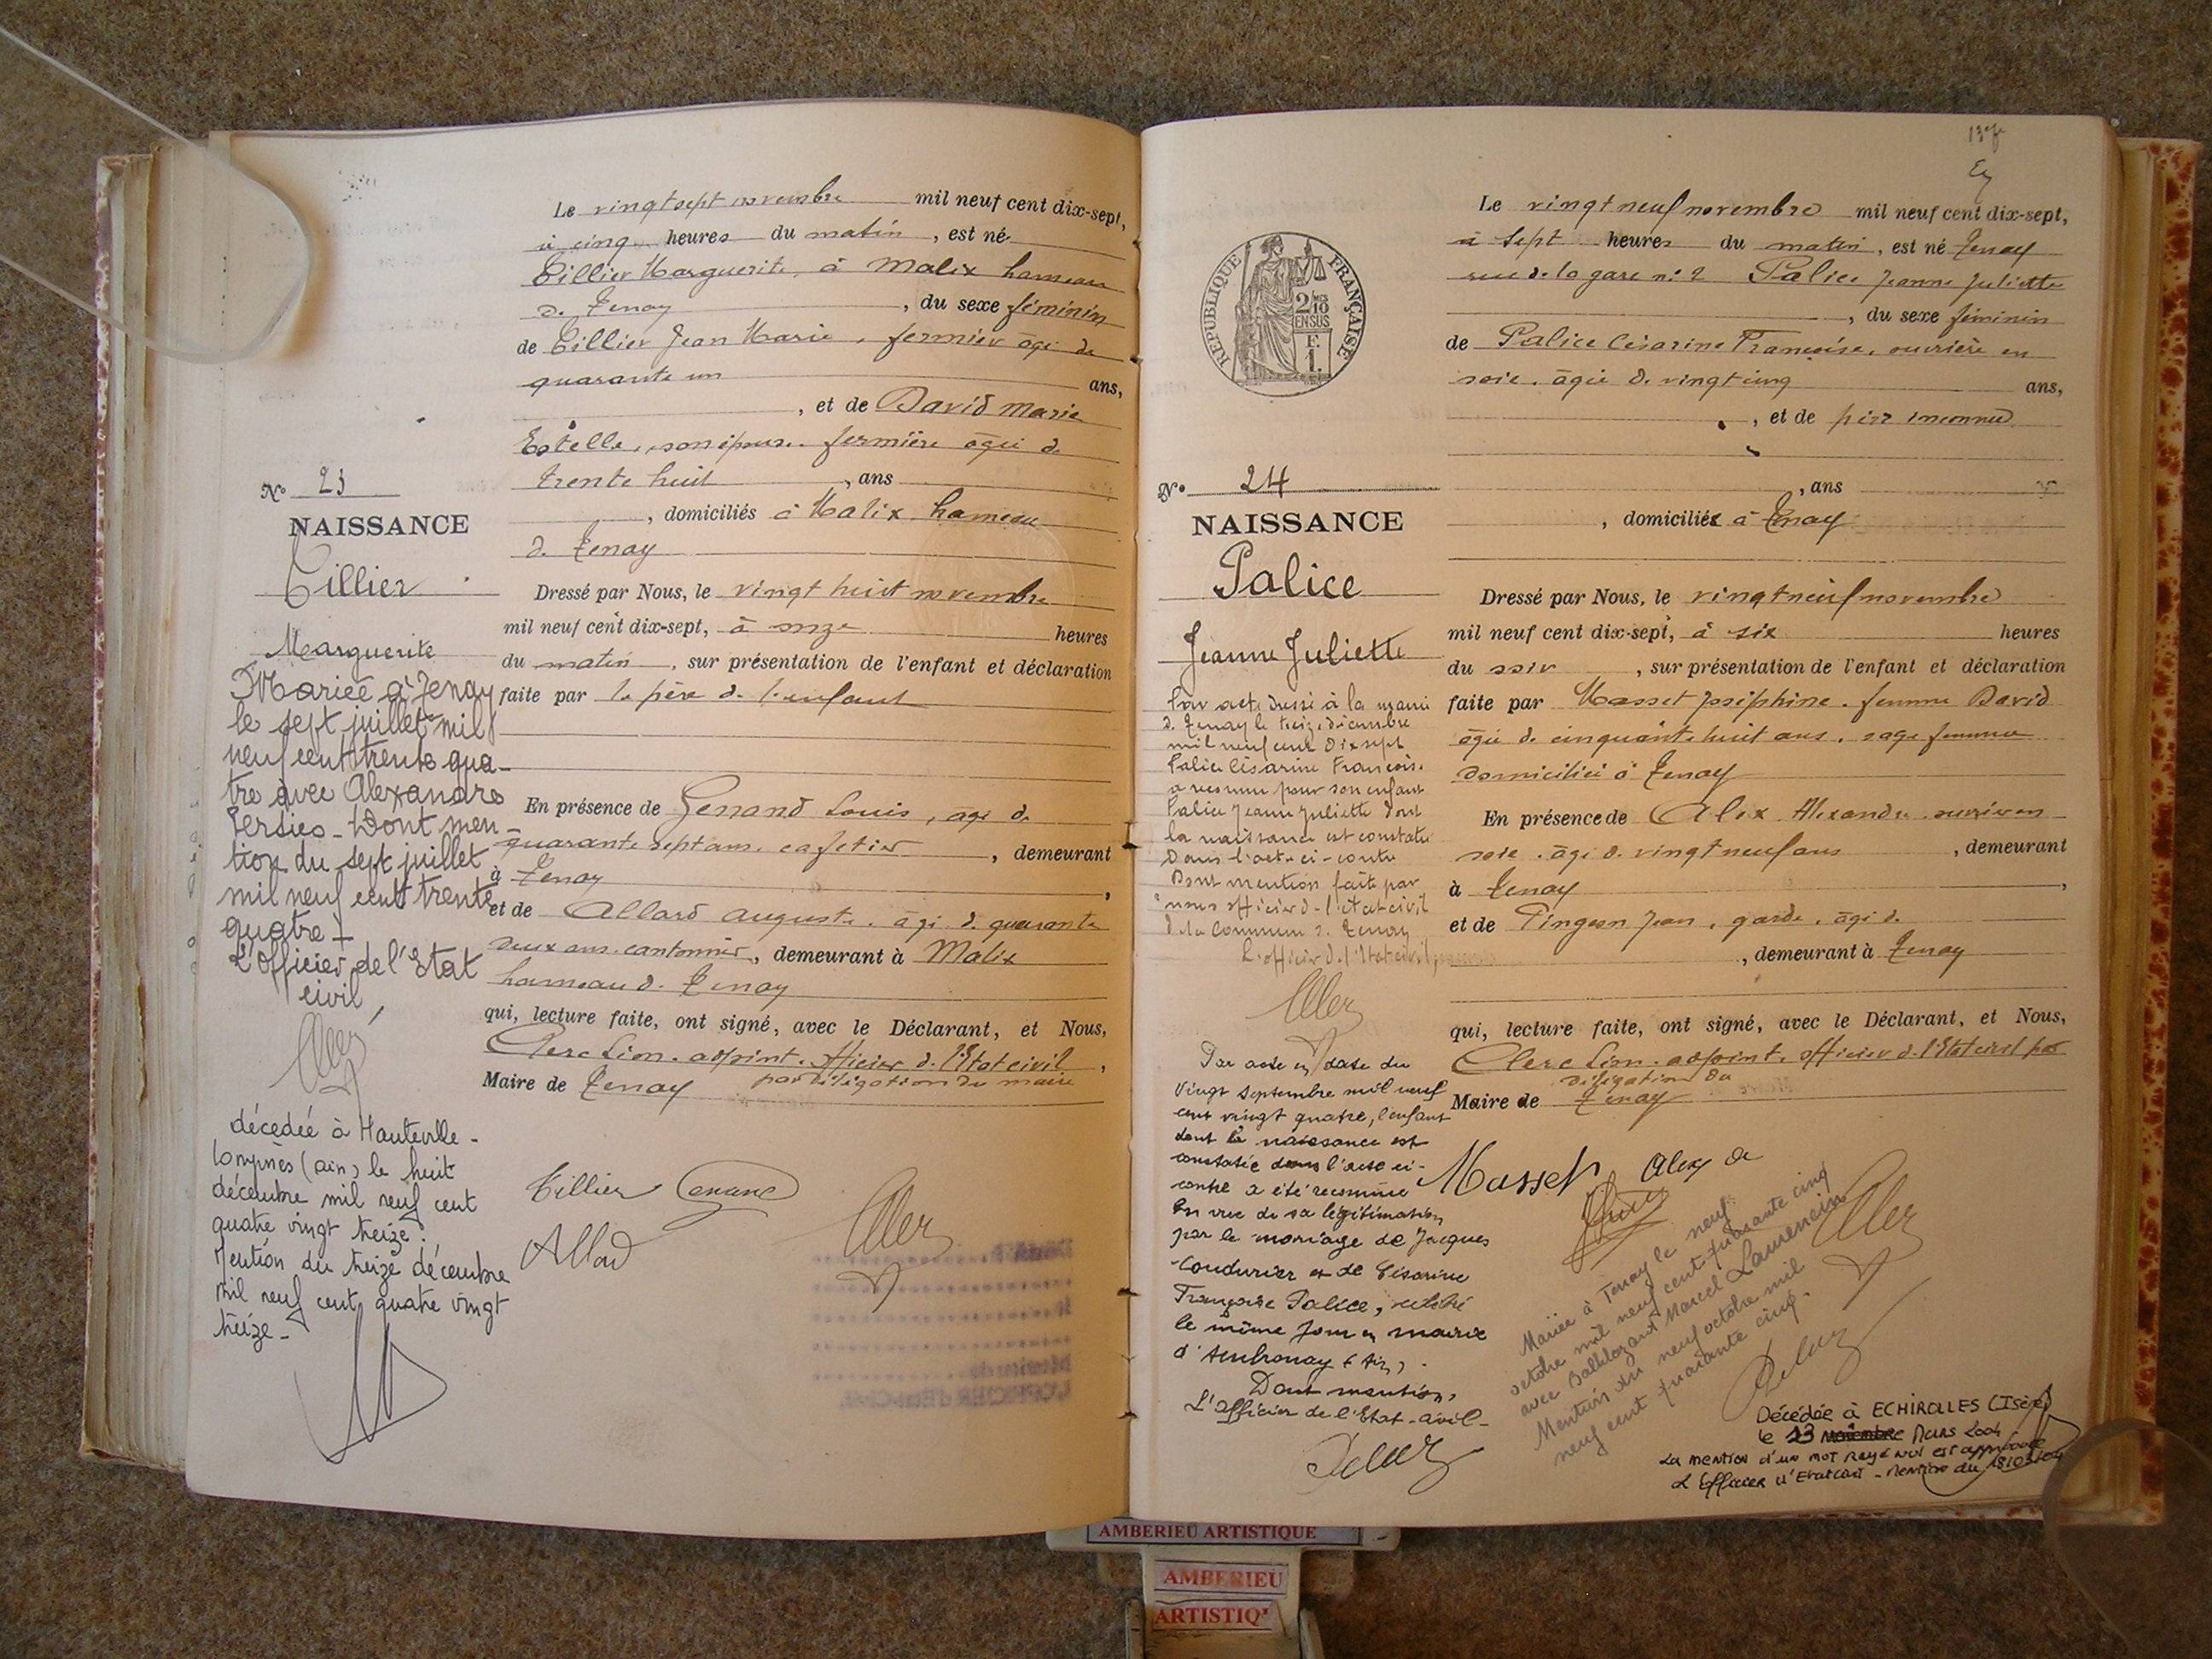 Le vingt sept novembre mil neuf cent dix-sept,
à cinq heures du matin, est né
Tillier Marguerite, à Malix hameau
de Tenay, du sexe féminin
de Tillier Jean Marie, fermier âgé de
quarante un ans,
, et de David Marie
Estelle, son épouse fermière âgée de
trente huit, ans
, domiciliés à Malix hameau
de Tenay
N° 23
NAISSANCE
Tillier
Marguerite
Dressé par Nous, le vingt huit novembre
mil neuf cent dix-sept, à onze heures
du matin, sur présentation de l'enfant et déclaration
faite par le père de l'enfant
En présence de Genand Louis, âgé de
quarante sept ans, cafetier, demeurant
à Tenay,
et de Allard Auguste, âgé de quarante
deux ans cantonnier, demeurant à Malix
hameau de Tenay
qui, lecture faite, ont signé, avec le Déclarant, et Nous,
Clerc Léon, adjoint, officier de l'Etat civil,
par délégation du maire
Maire de Tenay
Mariée à Tenay
le sept juillet mil
neuf cent trente qua-
tre avec Alexandre
Dont men-
tion du sept juillet
mil neuf cent trente
quatre
L'Officier de l'Etat
civil,
décédée à Hauteville-
Lompnes (ain) le huit
décembre mil neuf cent
quatre vingt treize.
Mention du treize décembre
mil neuf cent quatre vingt
treize-
Tillier Genand
Allard
Clerc
Le vingt neuf novembre mil neuf cent dix-sept,
à sept heures du matin, est né Tenay
rue de la gare n° 2 Palice Jeanne Juliette
, du sexe féminin
de Palice Césarine Françoise, ouvrière en
soie, âgée de vingt cinq ans,
, et de père inconnu
, ans
, domiciliée à Tenay
RÉPUBLIQUE FRANÇAISE
2/10
EN SUS
F.
1.
N° 24
NAISSANCE
Palice
Jeanne Juliette
Dressé par Nous, le vingt neuf novembre
mil neuf cent dix-sept, à six heures
du soir, sur présentation de l'enfant et déclaration
faite par Masset Joséphine, femme David
âgée de cinquante huit ans, sage femme
domiciliée à Tenay
En présence de Alex Alexandre ouvrier en
soie, âgé de vingt neuf ans, demeurant
à Tenay,
et de Pingeon Jean, garde, âgé de
, demeurant à Tenay
qui, lecture faite, ont signé, avec le Déclarant, et Nous,
Clerc Léon, adjoint, officier de l'Etat civil par
délégation du
Maire de Tenay
Par acte dressé à la mairie
de Tenay le treize décembre
mil neuf cent dix sept
Palice Césarine Françoise
a reconnu pour son enfant
Palice Jeanne Juliette dont
la naissance est constatée
dans l'acte ci-contre
Dont mention faite par
nous officier de l'état civil
de la commune de Tenay
L'officier de l'Etat civil,
Par acte en date du
vingt septembre mil neuf
cent vingt quatre, l'enfant
dont la naissance est
constatée dans l'acte ci-
contre a été reconnue
en vue de sa légitimation
par le mariage de Jacques
Coudurier et de Césarine
Françoise Palice, célébré
le même jour en mairie
d'Ambronay (Ain).
Dont mention,
L'officier de l'Etat-civil-
Masset Alex a
Mariée à Tenay le neuf
octobre mil neuf cent quarante cinq
avec Marcel Laurencin
Mention du neuf octobre mil
neuf cent quarante cinq.
Décédée à ECHIROLLES (Isère)
le 13 novembre Mars 2004
La mention d'un mot rayé nul est approuvée
L'Officier d'Etat civil - Mention du 18/03/04
AMBERIEU ARTISTIQUE
AMBERIEU
ARTISTIQ